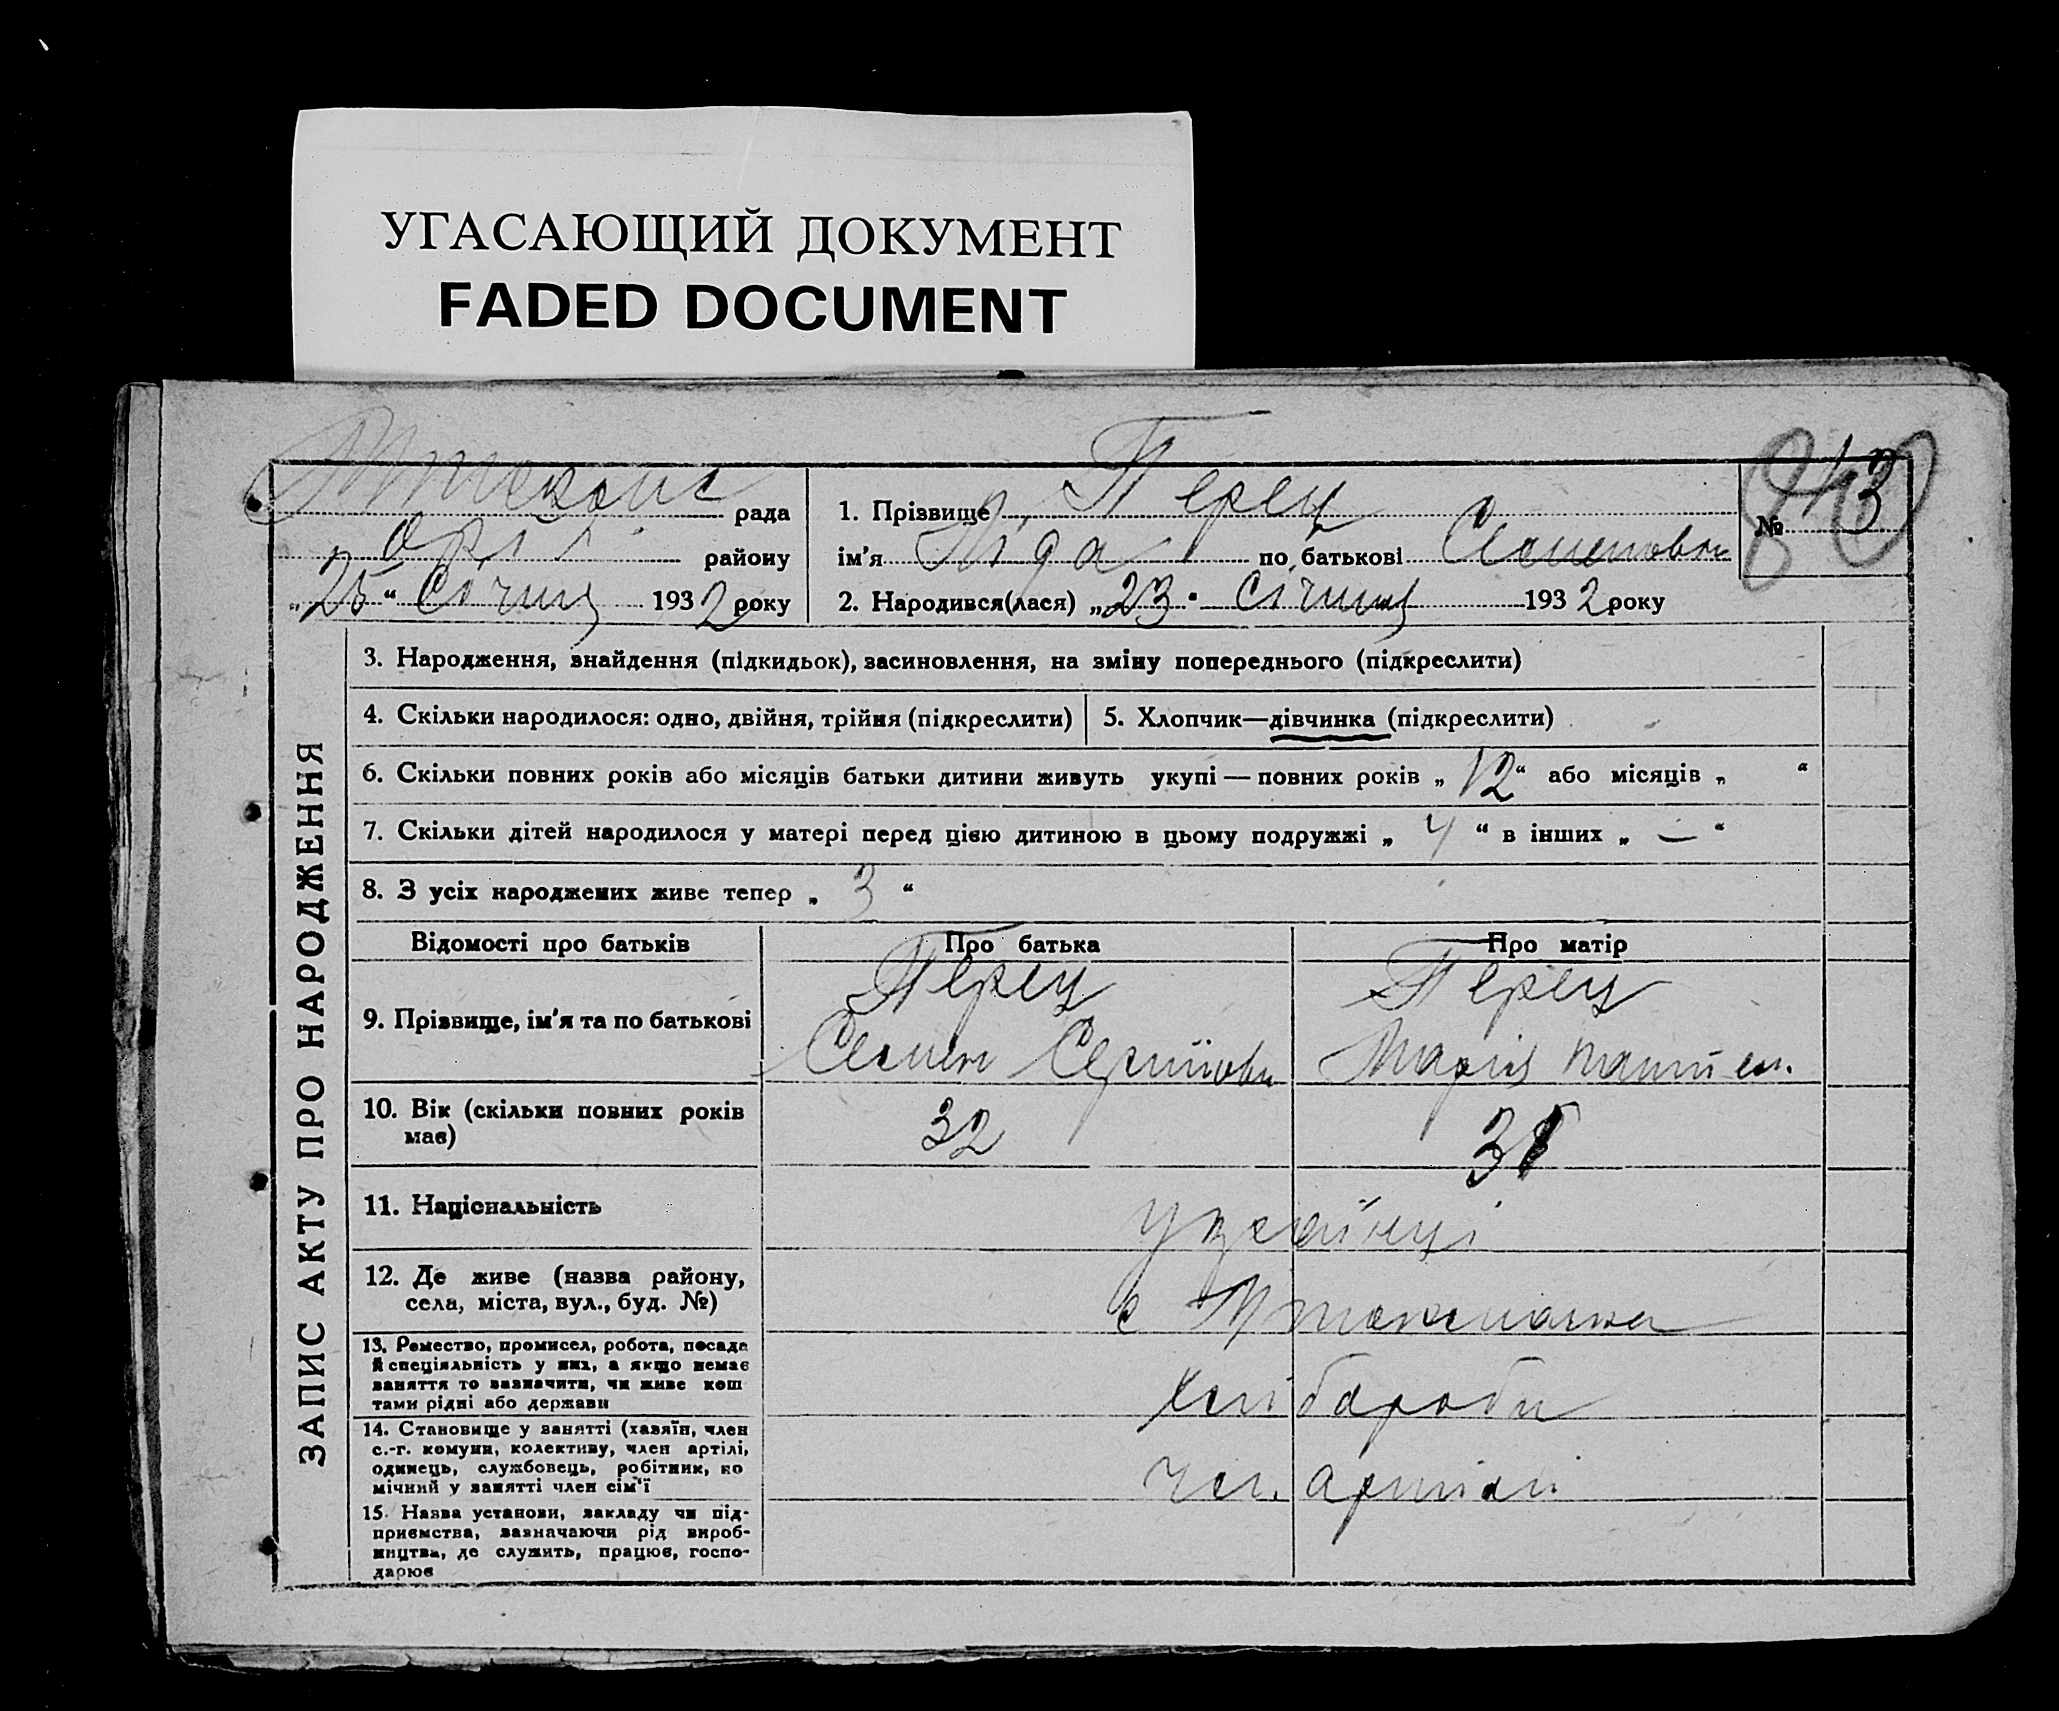 УГАСАЮЩИЙ ДОКУМЕНТ
FADED DOCUMENT
рада
району
„25“ Січня 1932 року
1. Прізвище Перец
ім'я Ліда по батькові Семеновна
2. Народився(лася) „23“ Січня 1932 року
№
3. Народження, знайдення (підкидьок), засиновлення, на зміну попереднього (підкреслити)
4. Скільки народилося: одно, двійня, трійня (підкреслити)
5. Хлопчик—дівчинка (підкреслити)
6. Скільки повних років або місяців батьки дитини живуть укупі — повних років „12“ або місяців „ “
7. Скільки дітей народилося у матері перед цією дитиною в цьому подружжі „4“ в інших „—“
8. З усіх народжених живе тепер „3“
ЗАПИС АКТУ ПРО НАРОДЖЕННЯ
Відомості про батьків
Про батька
Про матір
9. Прізвище, ім'я та по батькові
Перец
Семен
Перец
Марія
10. Вік (скільки повних років
має)
32
11. Національність
українці
12. Де живе (назва району,
села, міста, вул., буд. №)
с
13. Ремество, промисел, робота, посада
й спеціяльність у них, а якщо немає
заняття то зазначити, чи живе кош
тами рідні або держави
хліbороби
14. Становище у занятті (хазяїн, член
с.-г. комуни, колективу, член артілі,
одинець, службовець, робітник, по
мічний у занятті член сім'ї
чл. артілі
15. Назва установи, закладу чи під-
приємства, зазначаючи рід вироб-
ництва, де служить, працює, госпо-
дарює